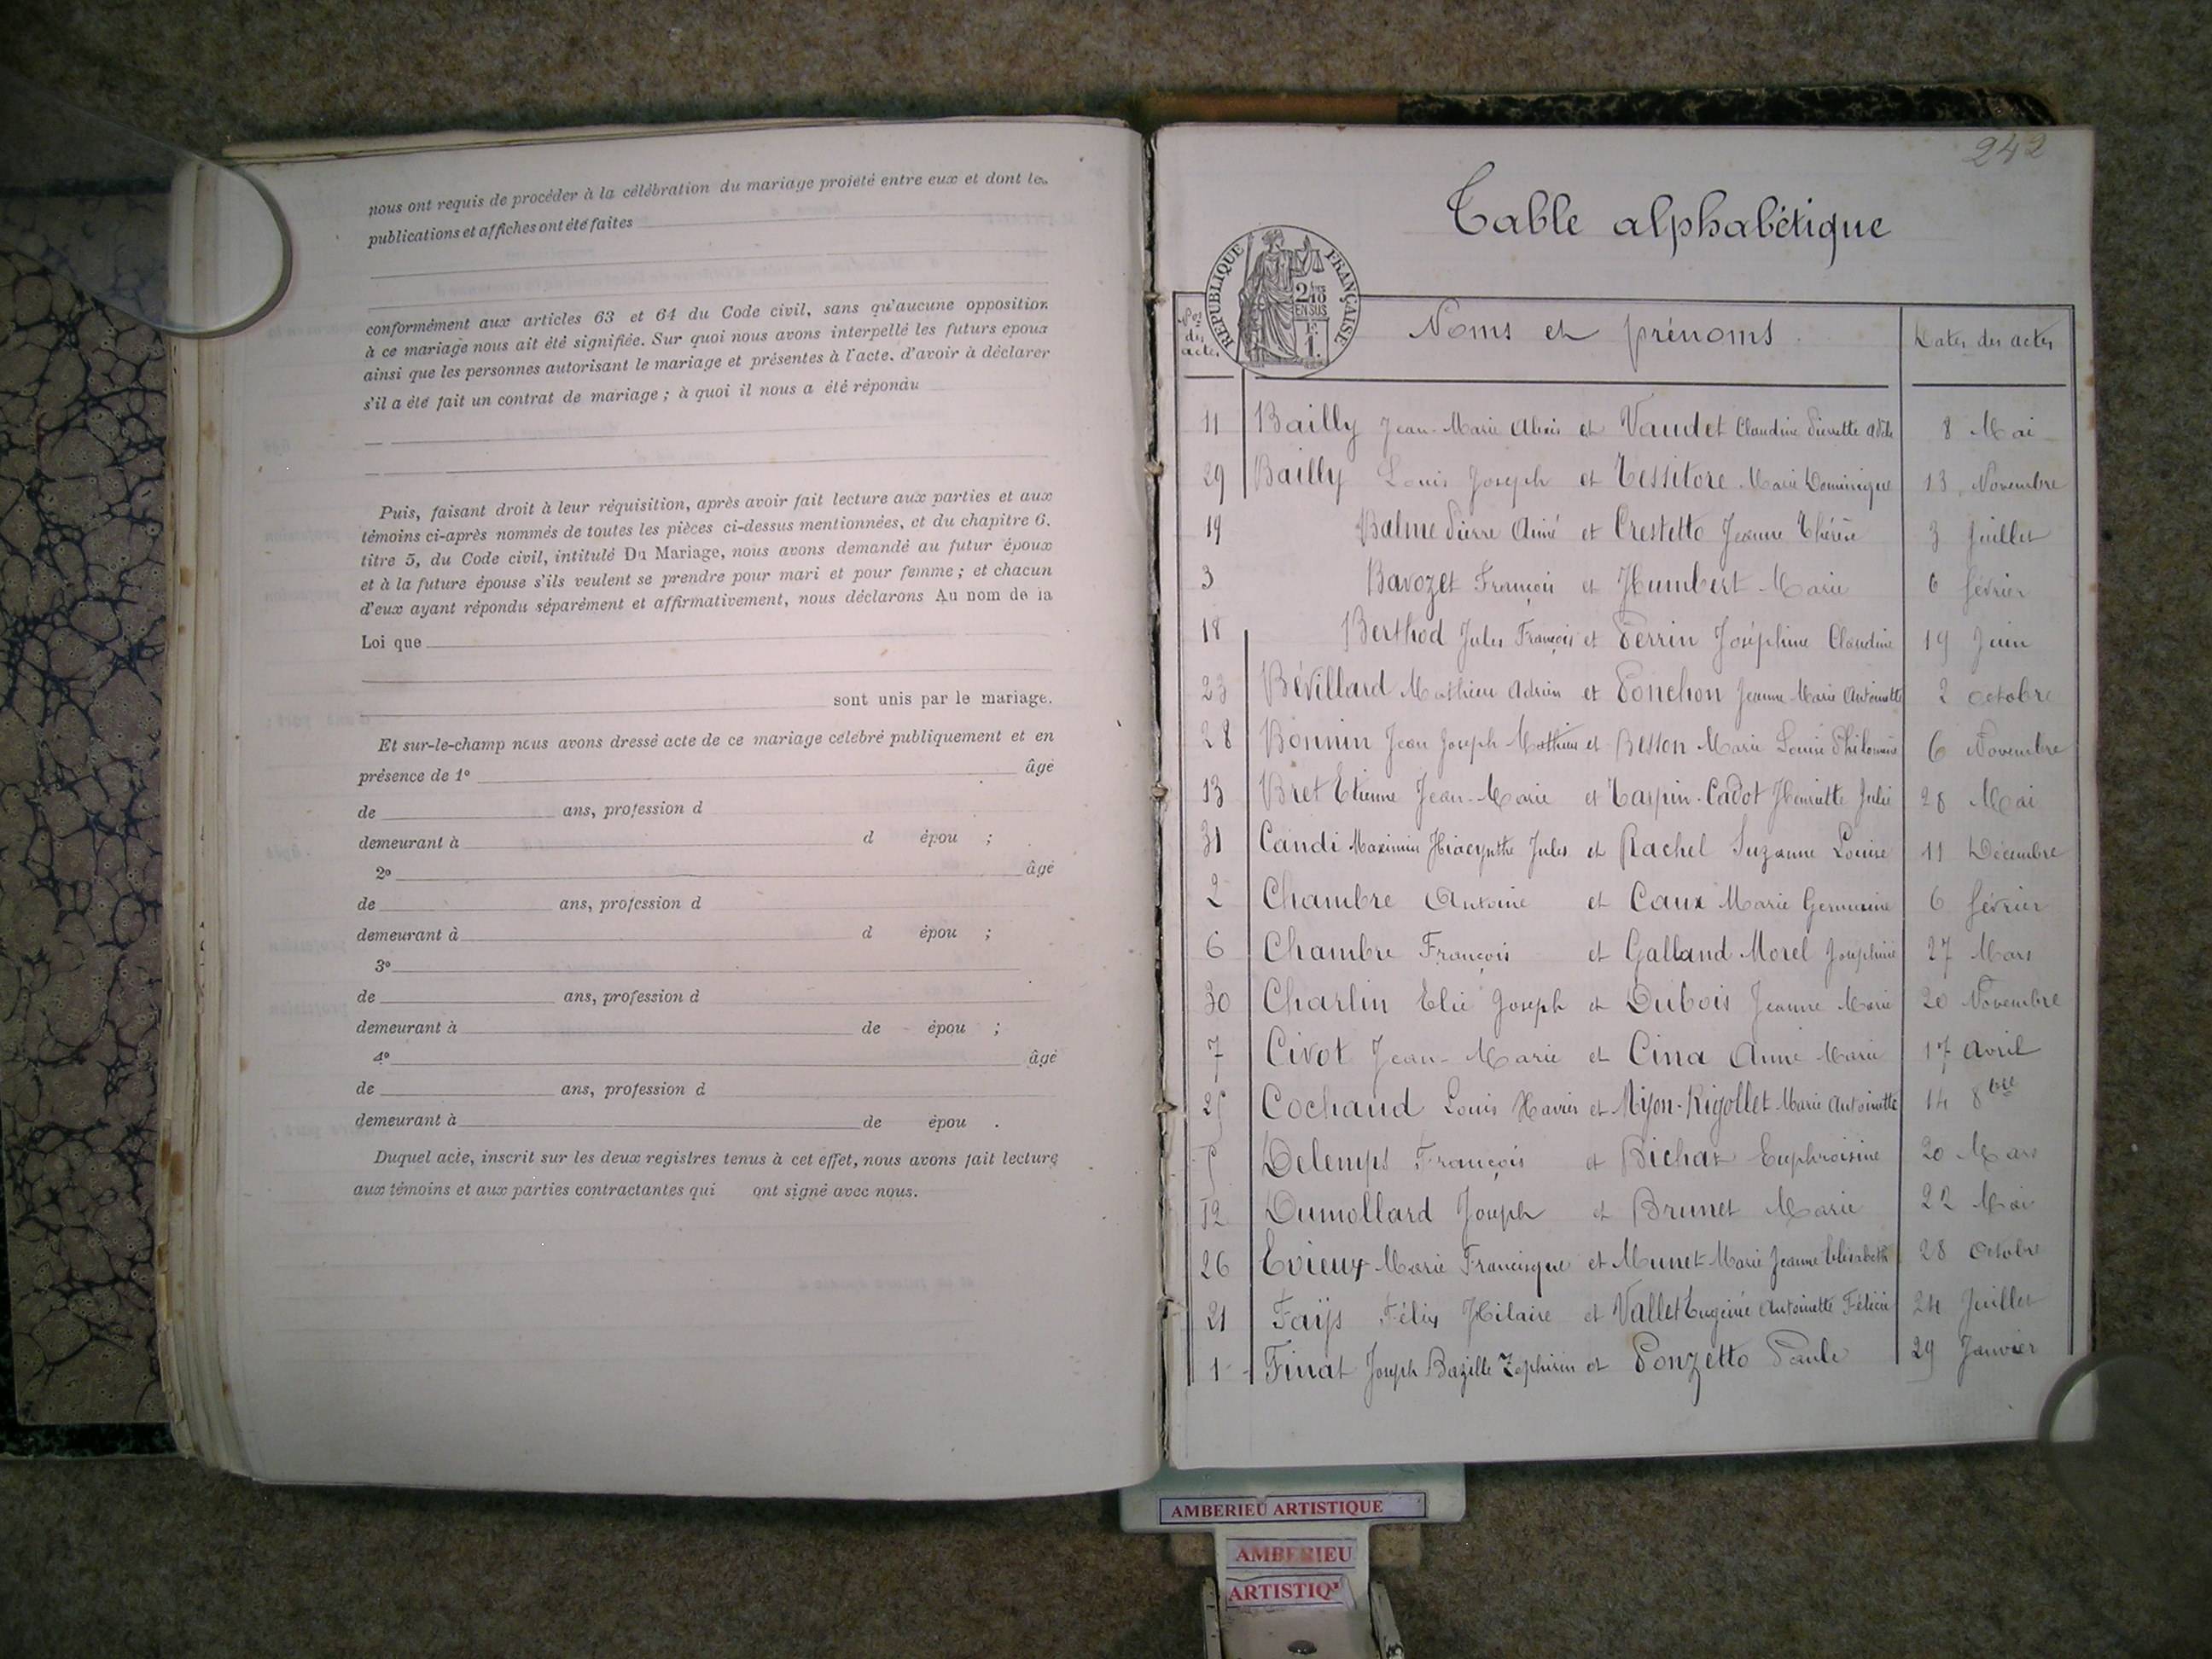 nous ont requis de procéder à la célébration du mariage projeté entre eux et dont les
publications et affiches ont été faites
conformément aux articles 63 et 64 du Code civil, sans qu'aucune opposition
à ce mariage nous ait été signifiée. Sur quoi nous avons interpellé les futurs epoux
ainsi que les personnes autorisant le mariage et présentes à l'acte, d'avoir à déclarer
s'il a été fait un contrat de mariage ; à quoi il nous a été répondu
Puis, faisant droit à leur réquisition, après avoir fait lecture aux parties et aux
témoins ci-après nommés de toutes les pièces ci-dessus mentionnées, et du chapitre 6,
titre 5, du Code civil, intitulé Du Mariage, nous avons demandé au futur époux
et à la future épouse s'ils veulent se prendre pour mari et pour femme ; et chacun
d'eux ayant répondu séparément et affirmativement, nous déclarons Au nom de la
Loi que
sont unis par le mariage.
Et sur-le-champ nous avons dressé acte de ce mariage célébré publiquement et en
présence de 1º âgé
de ans, profession d
demeurant à d épou ;
2º âgé
de ans, profession d
demeurant à d épou ;
3º
de ans, profession d
demeurant à de épou ;
4º âgé
de ans, profession d
demeurant à de épou .
Duquel acte, inscrit sur les deux registres tenus à cet effet, nous avons fait lecture
aux témoins et aux parties contractantes qui ont signé avec nous.
242
Table alphabétique
REPUBLIQUE FRANÇAISE
EN SUS
Nos des actes Noms et prénoms Dates des actes
11 Bailly Jean-Marie Alexis et Vaudet Claudine Pierrette 8 Mai
29 Bailly Louis Joseph et Tessitore Marie Dominique 13 Novembre
19 Balme Pierre Aimé et Crestetto Jeanne Thérèse 3 Juillet
3 Bavozet François et Humbert Marie 6 février
18 Berthod Jules François et Perrin Joséphine Claudine 19 Juin
23 Bévillard Mathieu Adrien et Ponchon Jeanne Marie Antoinette 2 Octobre
28 Bonnin Jean Joseph Mathieu et Besson Marie Louise Philomène 6 Novembre
13 Bret Etienne Jean-Marie et Taspin-Cadot Henriette Julie 28 Mai
31 Candi Maximin Hiacynthe Jules et Rachel Suzanne Louise 11 Décembre
2 Chambre Antoine et Caux Marie Germaine 6 février
6 Chambre François et Galland Morel Joséphine 27 Mars
30 Charlin Elie Joseph et Dubois Jeanne Marie 20 Novembre
7 Civot Jean-Marie et Cina Anne Marie 17 Avril
25 Cochaud Louis Xavier et Mijon-Rigollet Marie Antoinette 14 8bre
5 Delemps François et Bichat Euphroisine 20 Mars
12 Dumollard Joseph et Brunet Marie 22 Mai
26 Evieux Marie Francisque et Munet Marie Jeanne Elisabeth 28 Octobre
21 Faÿs Félix Hilaire et Vallet Eugénie Antoinette Félicie 24 Juillet
1 Finat Joseph Bazille Zéphirin et Ponzetto Paule 29 Janvier
AMBERIEU ARTISTIQUE
AMBERIEU
ARTISTIQ